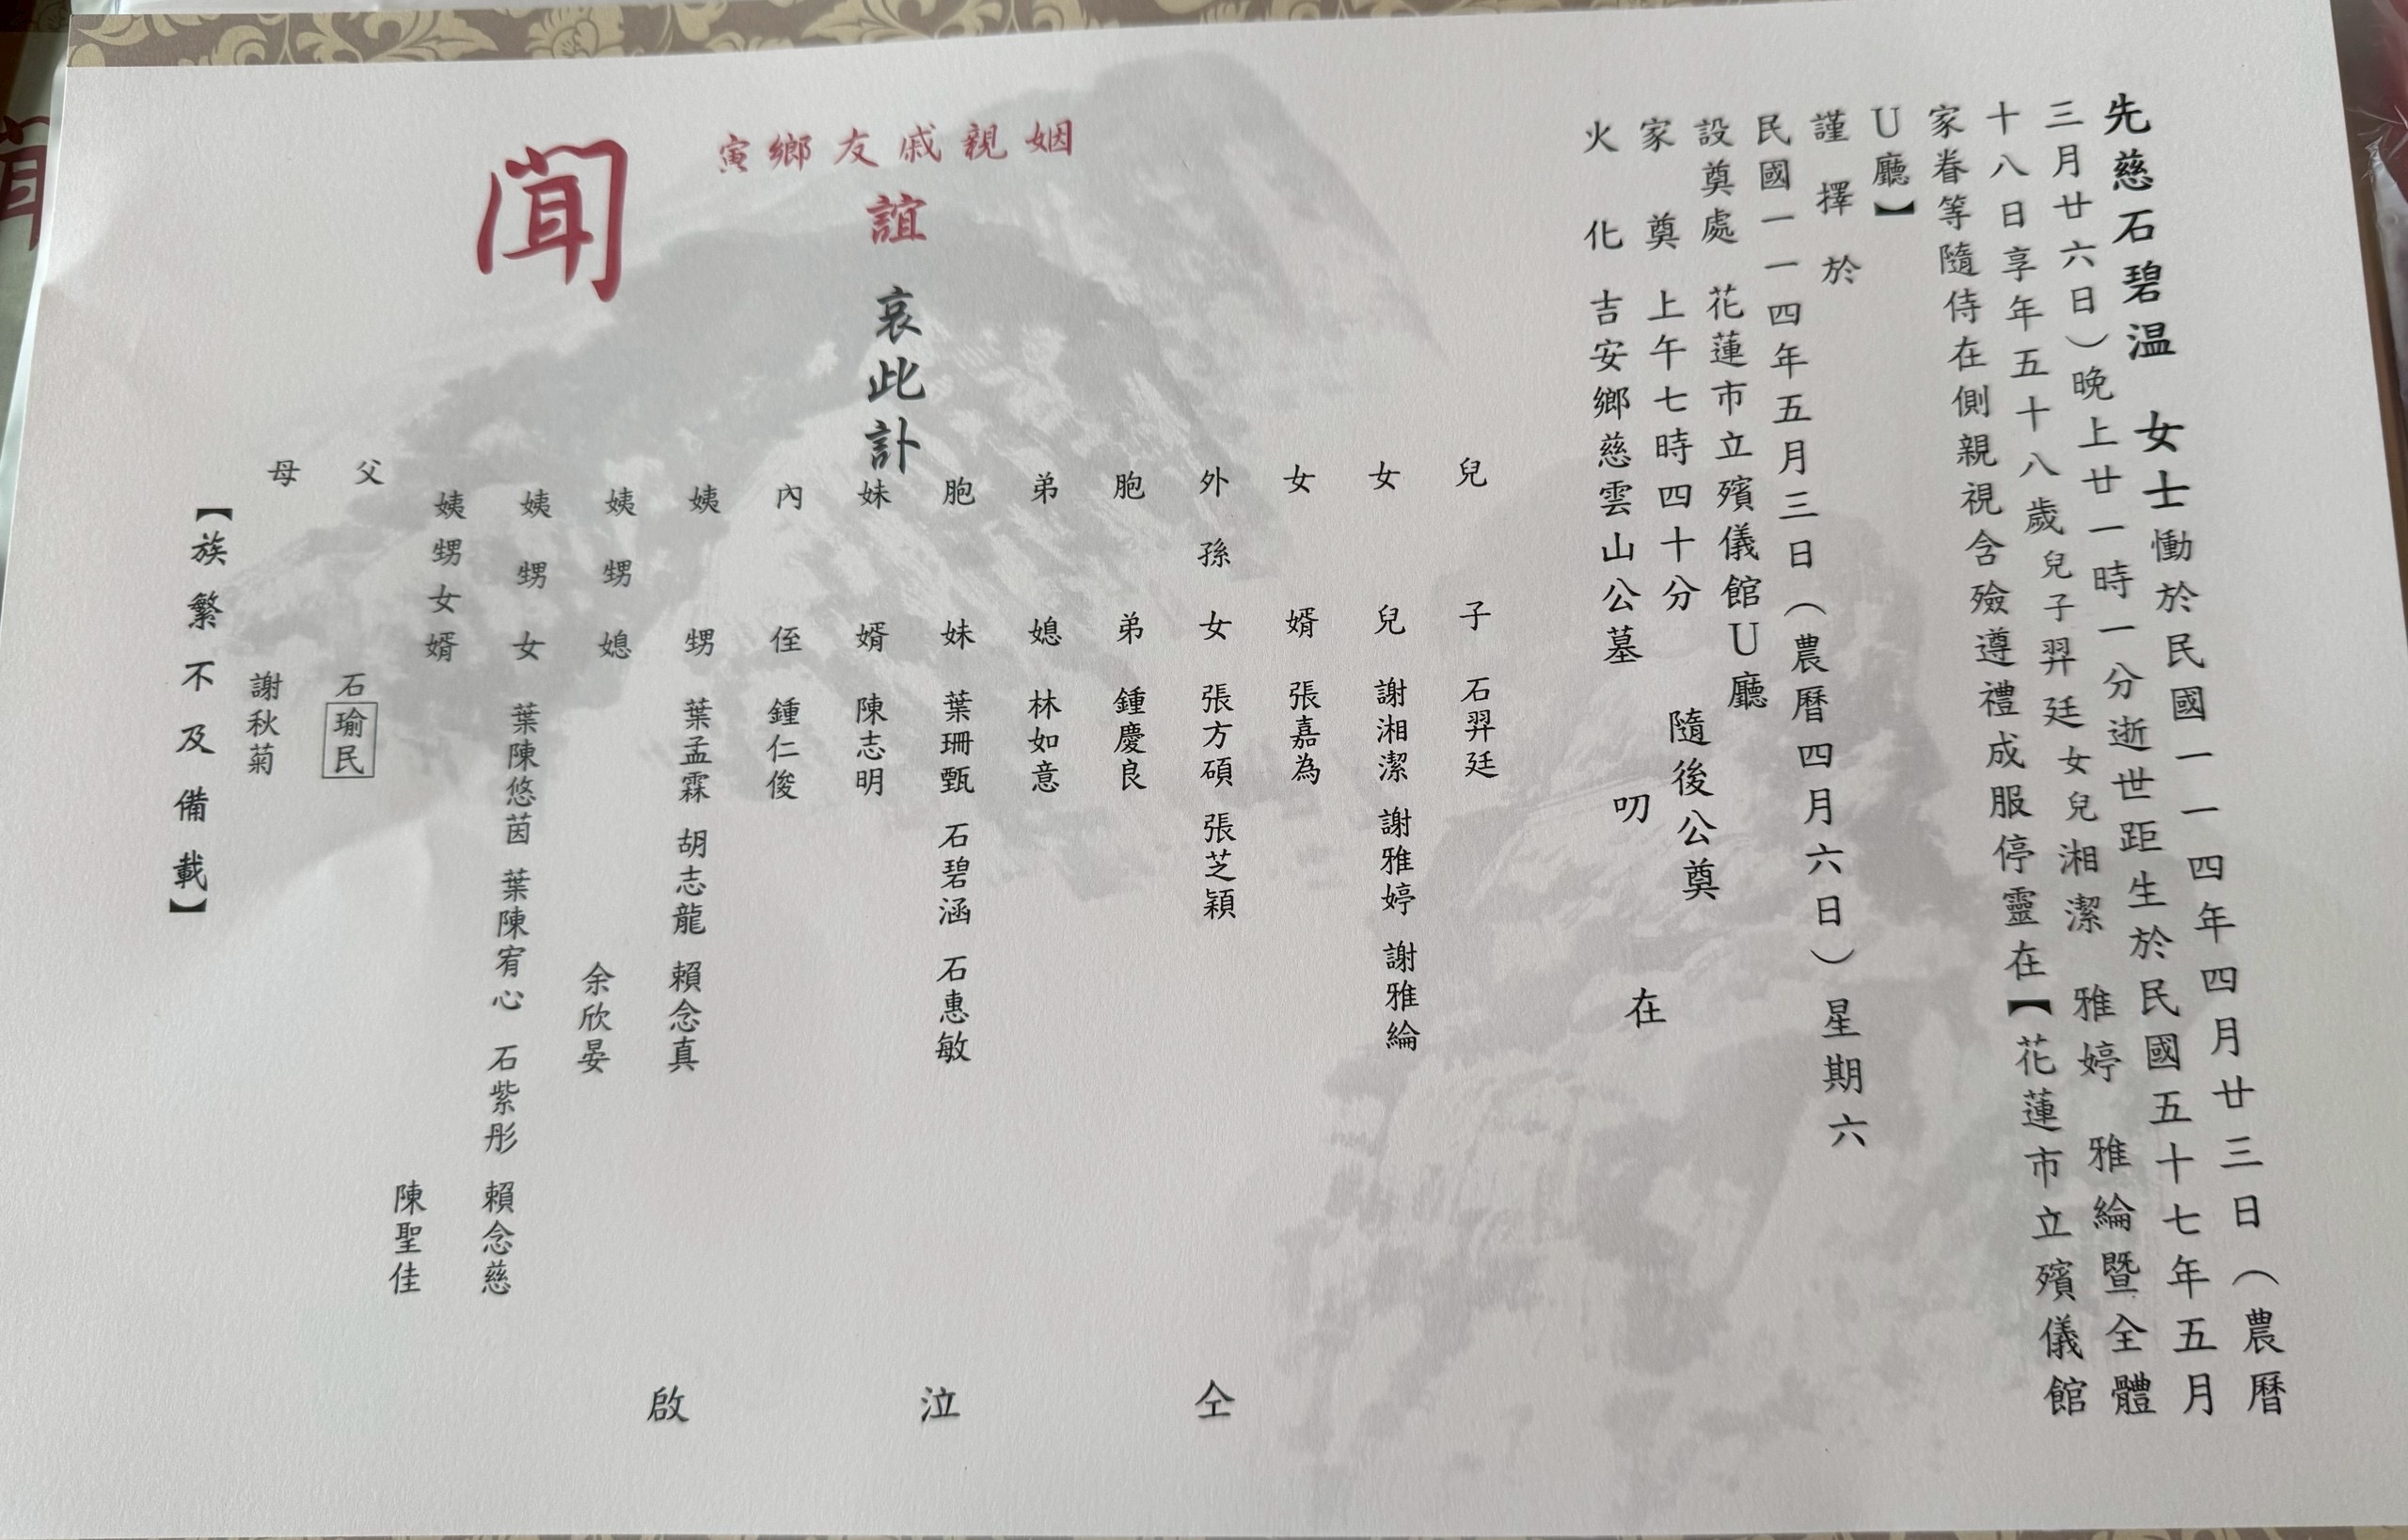 先慈石碧温 女士慟於民國一一四年四月廿三日（農曆
三月廿六日）晚上廿一時一分逝世距生於民國五十七年五月
十八日享年五十八歲兒子羿廷女兒湘潔 雅婷 雅綸暨全體
家眷等隨侍在側親視含殮遵禮成服停靈在【花蓮市立殯儀館
U廳】
謹擇於
民國一一四年五月三日（農曆四月六日）星期六
設奠處 花蓮市立殯儀館U廳
家奠 上午七時四十分 隨後公奠
火化 吉安鄉慈雲山公墓 叨在
姻親戚友鄉寅
誼 哀此訃
聞
兒子 石羿廷
女兒 謝湘潔 謝雅婷 謝雅綸
女婿 張嘉為
外孫女 張方碩 張芝穎
胞弟 鍾慶良
弟媳 林如意
胞妹 葉珊甄 石碧涵 石惠敏
妹婿 陳志明
內侄 鍾仁俊
姨甥 葉孟霖 胡志龍 賴念真
姨甥媳 余欣晏
姨甥女 葉陳悠茵 葉陳宥心 石紫彤 賴念慈
姨甥女婿 陳聖佳
父 石瑜民
母 謝秋菊
【族繁不及備載】
仝泣啟